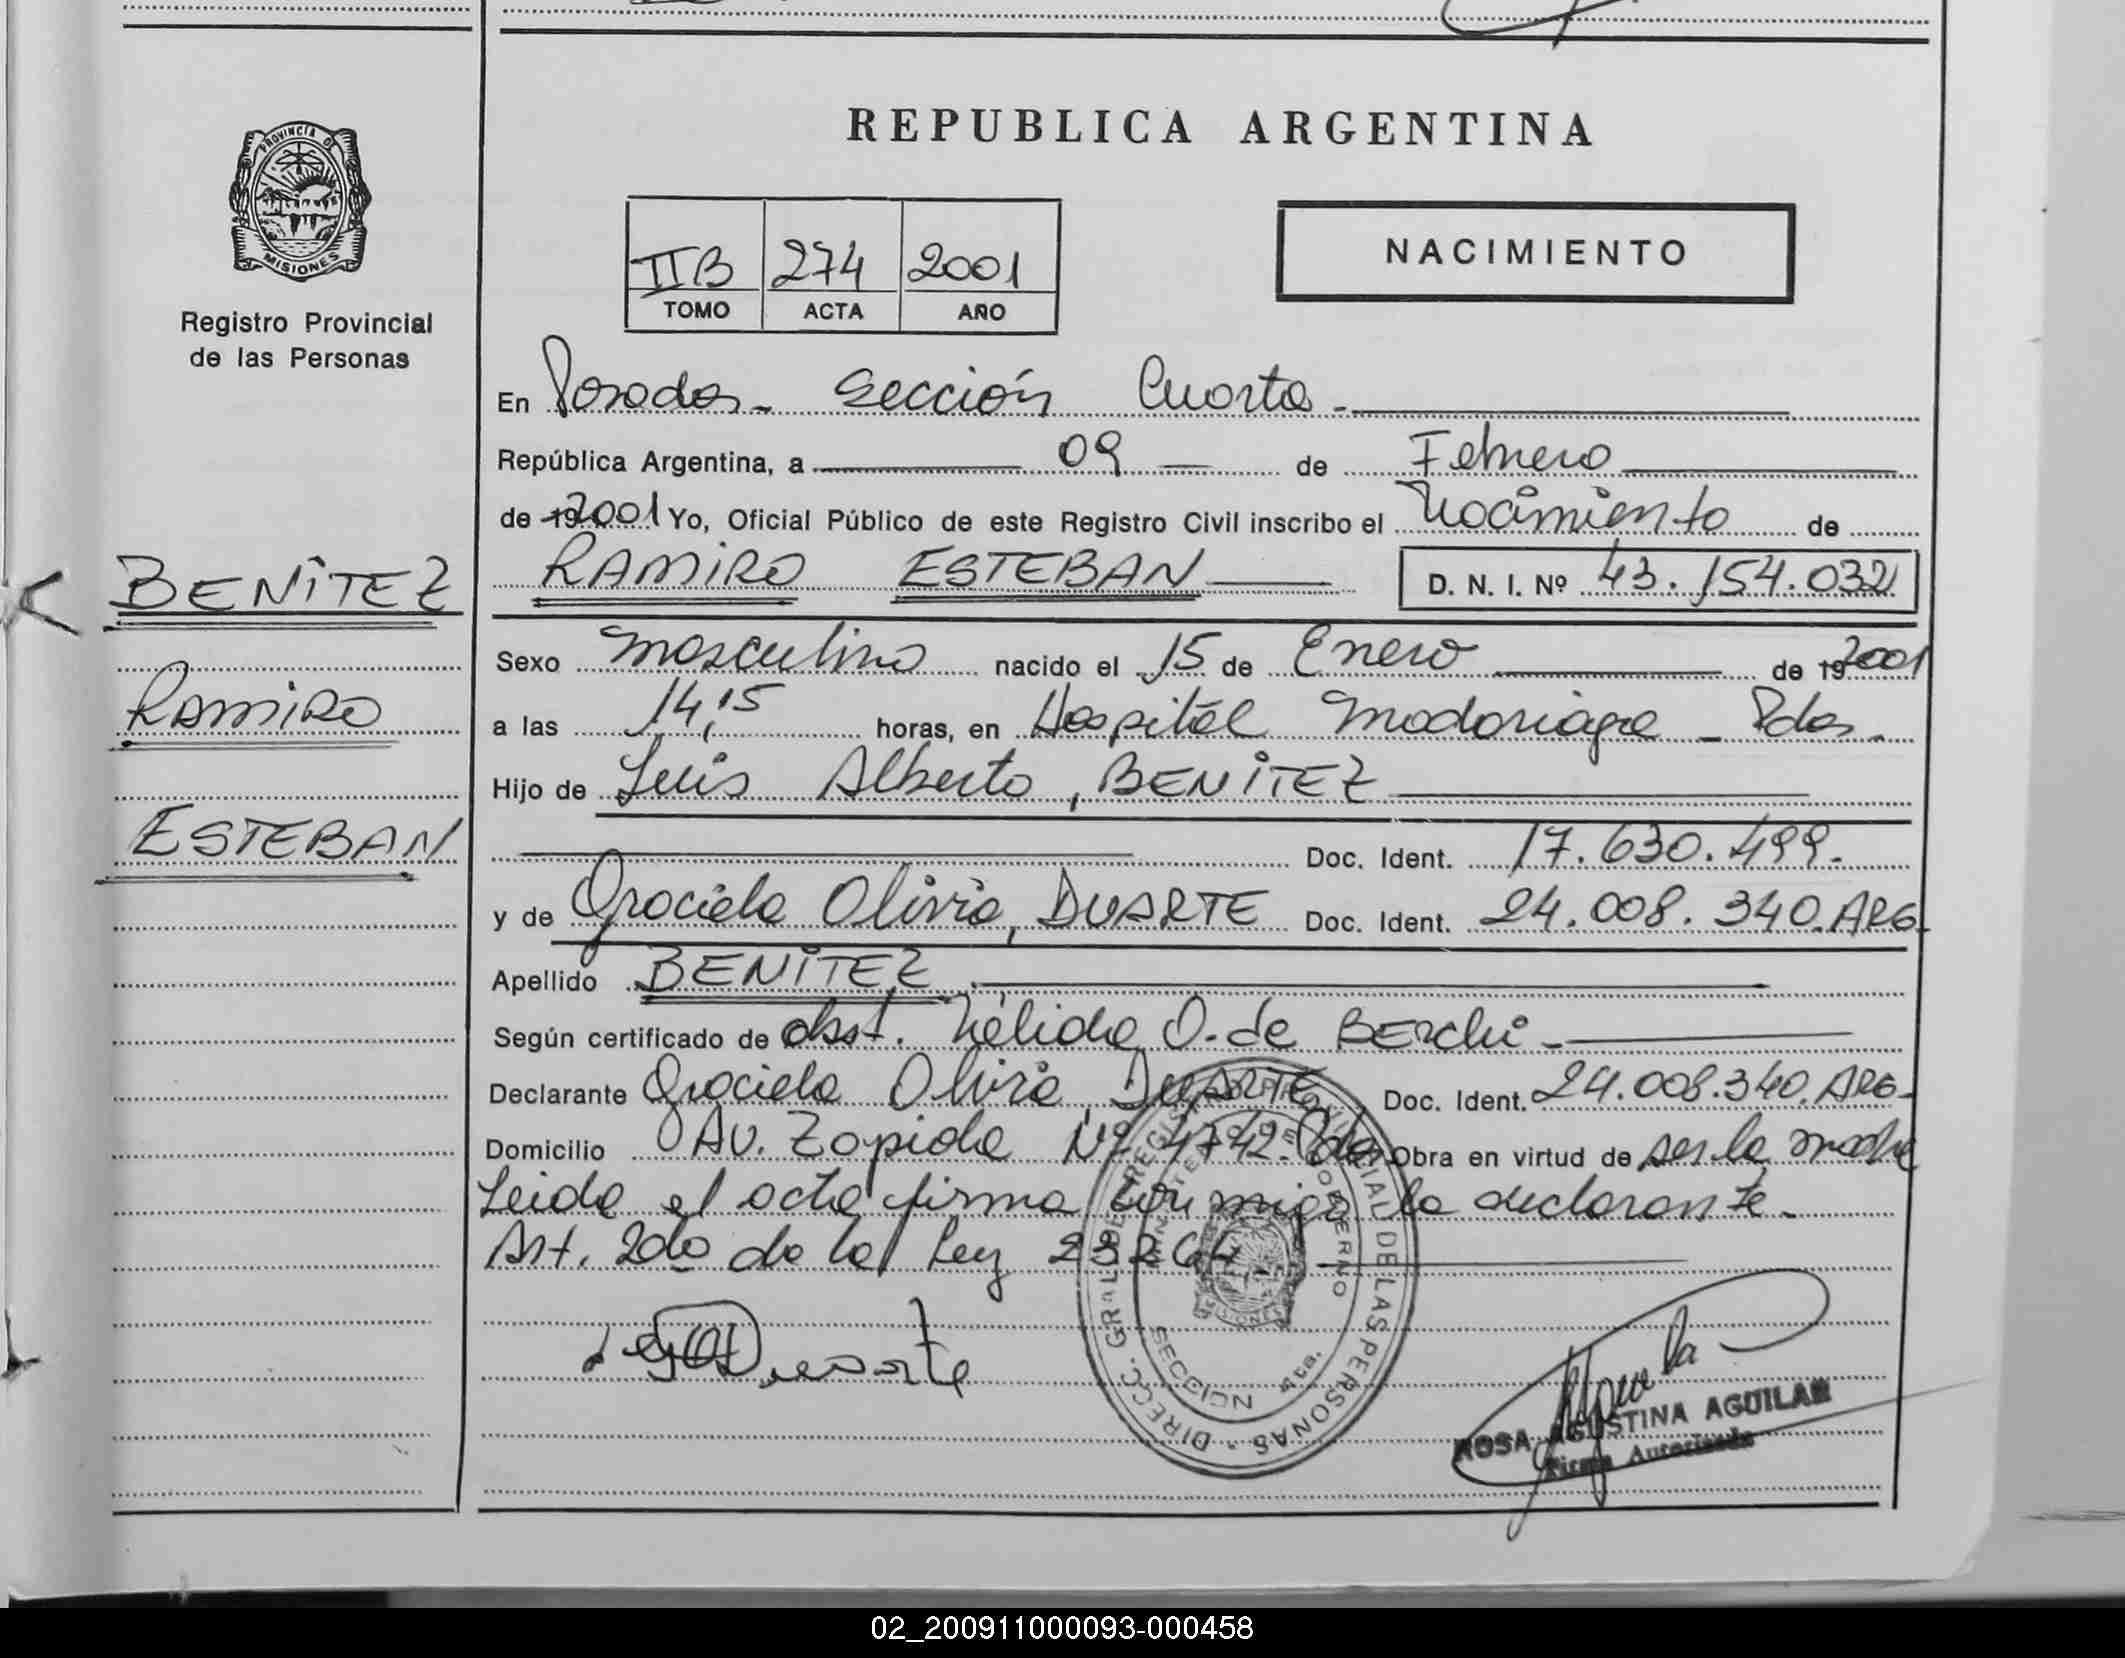 REPUBLICA ARGENTINA
PROVINCIA DE
MISIONES
Registro Provincial
de las Personas
IIB 274 2001
TOMO ACTA AÑO
NACIMIENTO
En Posadas - Sección Cuarta -
República Argentina, a 09 de Febrero
de 19 2001 Yo, Oficial Público de este Registro Civil inscribo el Nacimiento de
RAMIRO ESTEBAN D. N. I. Nº 43.154.032
BENITEZ
RAMIRO
ESTEBAN
Sexo masculino nacido el 15 de Enero de 19 2001
a las 14,15 horas, en Hospital Madariaga - Pdas.
Hijo de Luis Alberto, BENITEZ
Doc. Ident. 17.630.499.
y de Graciela Olivia, DUARTE Doc. Ident. 24.008.340.ARG.
Apellido BENITEZ
Según certificado de obst. Nélida O. de BERCHI -
Declarante Graciela Olivia, DUARTE, Doc. Ident. 24.008.340.ARG-
Domicilio Av. Zapiola Nº 4742. Pdas Obra en virtud de ser la madre
Leida el acta firma conmigo la declarante.
Art. 2do de la Ley 23264 -
Duarte
DIRECC. GRAL. DEL REGISTRO PROVINCIAL DE LAS PERSONAS
MINISTERIO DE GOBIERNO
MISIONES
SECCION 4ta.
ROSA AGUSTINA AGUILAR
Firma Autorizada
02_200911000093-000458